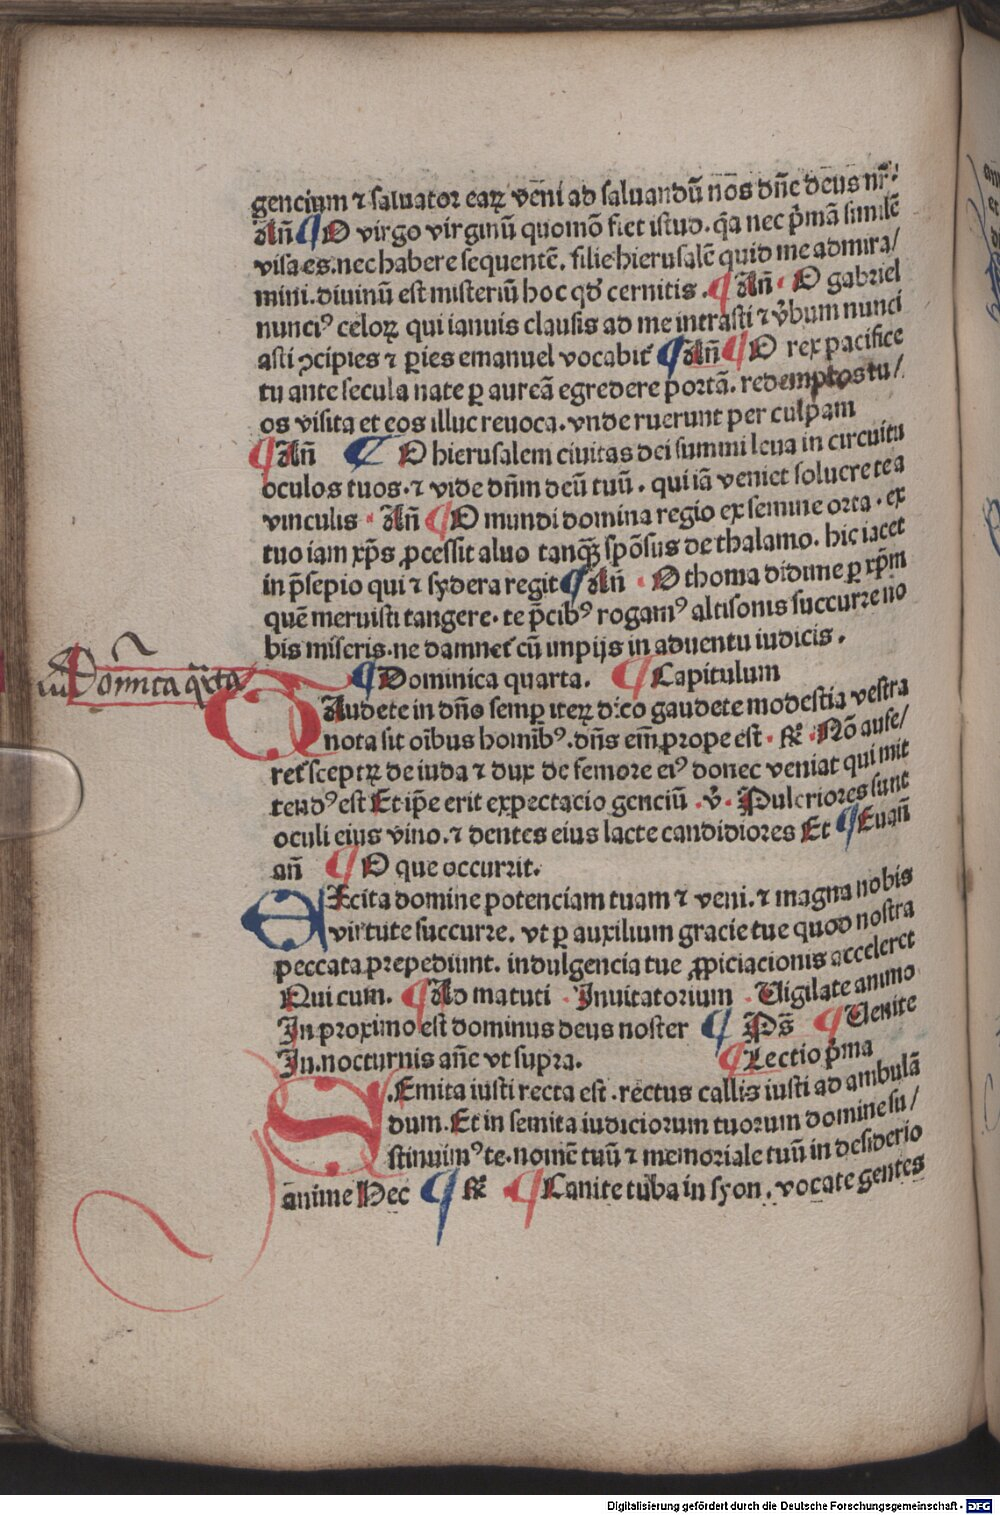 gencium ⁊ saluator eaꝝ veni ad saluandū nos dn̄e deus nr̄.
An̄ ¶ O virgo virginū quomō fiet istud. q̄a nec p̄mā similē
visa es. nec habere sequentē. filie hierusalē quid me admira/
mini. diuinū est misteriū hoc qđ cernitis . ¶ An̄ · O gabriel
nunciꝰ celoꝝ qui ianuis clausis ad me intrasti ⁊ v̄bum nunci
asti ↄcipies ⁊ ꝑies emanuel vocabit᷑ ¶ An̄ ¶ O rex pacifice
tu ante secula nate ꝑ aureā egredere portā. redemptos tu/
os visita et eos illuc reuoca. vnde ruerunt per culpam
¶ An̄ ¶ O hierusalem ciuitas dei summi leua in circuitu
oculos tuos. ⁊ vide dn̄m deū tuū . qui iā veniet soluere te a
vinculis · An̄ ¶ O mundi domina regio ex semine orta . ex
tuo iam xp̄s ꝓcessit aluo tanqꝫ spōsus de thalamo. hic iacet
in p̄sepio qui ⁊ sydera regit ¶ An̄ · O thoma didime ꝑ xp̄m
quē meruisti tangere. te p̄cibꝰ rogamꝰ altisonis succurre no
bis miseris. ne damnet᷑ cū impijs in aduentu iudicis .
Domīca q̄rta
¶ Dominica quarta. ¶ Capitulum
GAudete in dn̄o semꝑ iteꝝ dico gaudete modestia vestra
nota sit oībus homībꝰ. dn̄s em̄ prope est · ℟ · Nō aufe/
ret᷑ sceptꝝ de iuda ⁊ dux de femore eiꝰ donec veniat qui mit
tendꝰ est Et ip̄e erit expectacio genciū . ℣ · Pulcriores sunt
oculi eius vino. ⁊ dentes eius lacte candidiores Et ¶ Euan̄
an̄ ¶ O que occurrit.
EXcita domine potenciam tuam ⁊ veni. ⁊ magna nobis
virtute succurre. vt ꝑ auxilium gracie tue quod nostra
peccata prepediunt. indulgencia tue ꝓpiciacionis acceleret
Qui cum. ¶ Ad matuti · Inuitatorium · Vigilate animo
In proximo est dominus deus noster ¶ Ps̄ ¶ Uenite
In. nocturnis an̄e vt supra. ¶ Lectio p̄ma
SEmita iusti recta est . rectus callis iusti ad ambulā
dum. Et in semita iudiciorum tuorum domine su/
stinuimꝰ te. nomē tuū ⁊ memoriale tuū in desiderio
anime Hec ¶ ℟ ¶ Canite tuba in syon . vocate gentes
Digitalisierung gefördert durch die Deutsche Forschungsgemeinschaft · DFG